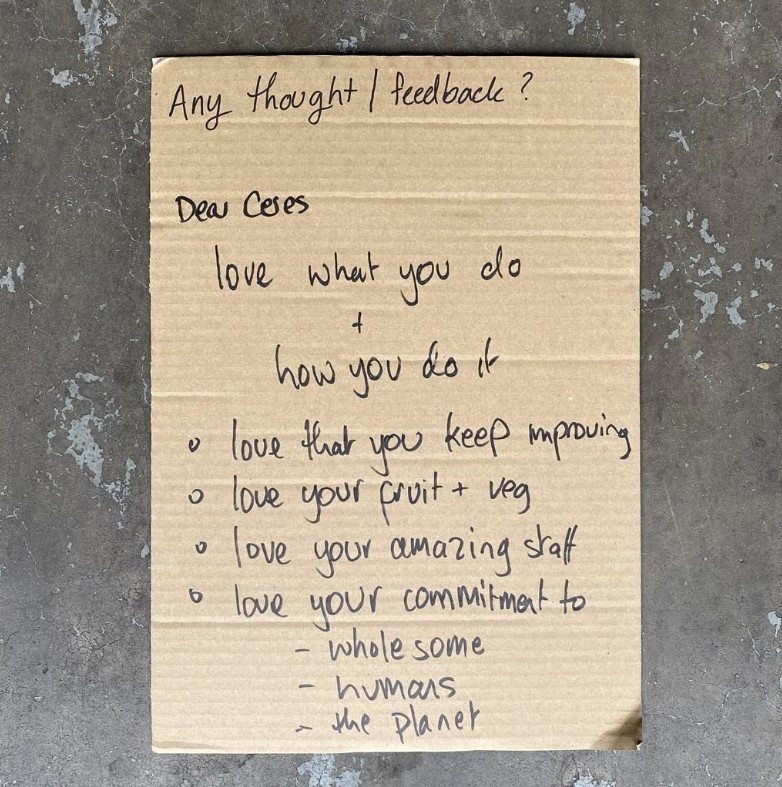 Any thought / feedback ?
Dear Ceres
love what you do
+
how you do it
o love that you keep improving
o love your fruit + veg
o love your amazing staff
o love your commitment to
- wholesome
- humans
- the planet